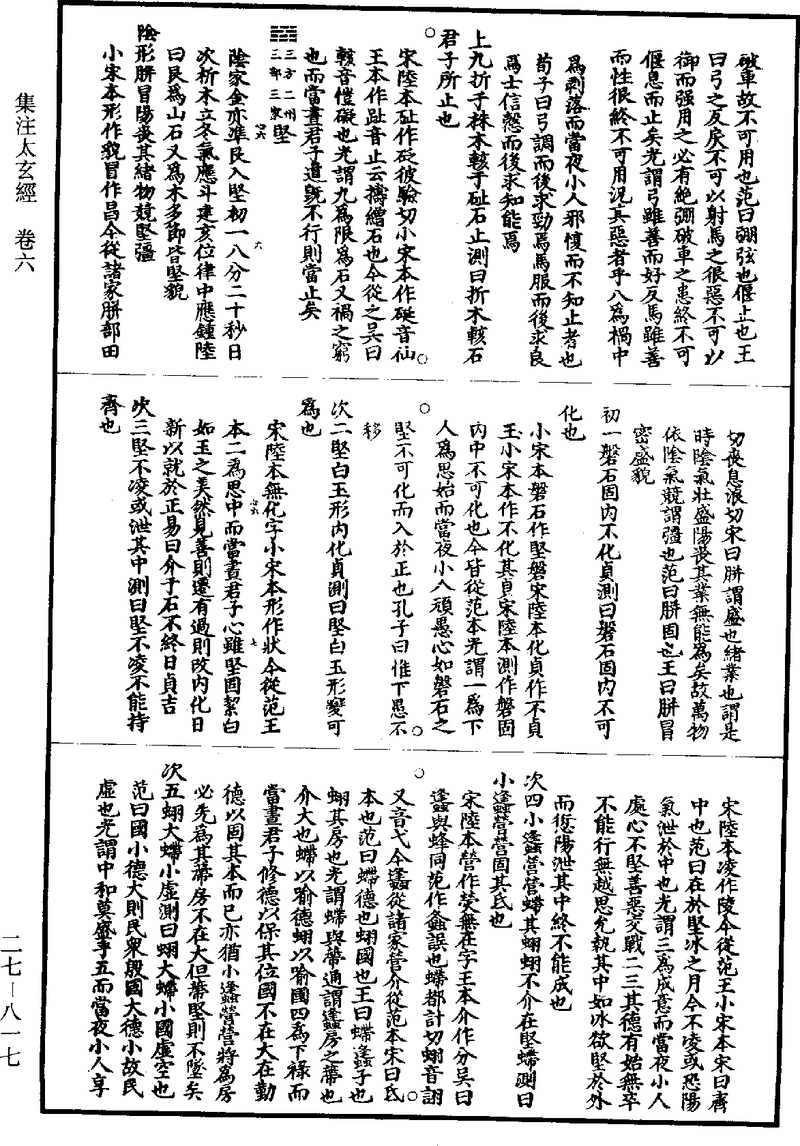 破車故不可用也范曰弸弦也偃止也王
曰弓之反戾不可以射馬之很惡不可以
御而强用之必有絶弸破車之患終不可
偃息而止矣光謂弓雖善而好反馬雖善
而性很終不可用況其惡者乎八為禍中
為剥落而當夜小人邪愎而不知止者也
荀子曰弓調而後求勁焉馬服而後求良
焉士信慤而後求知能焉
上九折于株木輆于砋石止測曰折木輆石
君子所止也
宋陸本砋作砭彼驗切小宋本作硟音仙
王本作趾音止云擣繒石也今從之吴曰
輆音愷礙也光謂九為限為石又禍之窮
也而當晝君子道旣不行則當止矣
三方二州三部三家堅
陰家金亦準艮入堅初一八分二十秒日
次析木立冬氣應斗建亥位律中應鍾陸
曰艮為山石又為木多節皆堅貌
陰形胼冒陽喪其緒物競堅彊
小宋本形作貌冒作昌今從諸家胼部田
切喪息浪切宋曰胼謂盛也緒業也謂是
時陰氣壯盛陽喪其業無能為矣故萬物
依陰氣競謂彊也范曰胼固也王曰胼冒
密盛貌
初一磐石固内不化貞測曰磐石固内不可
化也
小宋本磐石作堅磐宋陸本化貞作不貞
王小宋本作不化其貞宋陸本測作磐固
内中不可化也今皆從范本光謂一為下
人為思始而當夜小人頑愚心如磐石之
堅不可化而入於正也孔子曰惟下愚不
移
次二堅白玉形内化貞測曰堅白玉形變可
為也
宋陸本無化字小宋本形作狀今從范王
本二為思中而當晝君子心雖堅固絜白
如玉之美然見善則遷有過則改内化日
新以就於正易曰介于石不終日貞吉
次三堅不凌或泄其中測曰堅不凌不能持
齊也
宋陸本凌作陵今從范王小宋本宋曰齊
中也范曰在於堅冰之月今不凌或恐陽
氣泄於中也光謂三為成意而當夜小人
處心不堅善惡交戰二三其德有始無卒
不能行無越思先執其中如冰欲堅於外
而愆陽泄其中終不能成也
次四小䗬營營螮其蛡蛡不介在堅螮測曰
小䗬營營固其氐也
宋陸本營作熒無在字王本介作分吴曰
䗬與蜂同范作螽誤也螮都計切蛡音詡
又音弋今䗬從諸家營介從范本宋曰氐
本也范曰螮德也蛡國也王曰螮䗬子也
蛡其房也光謂螮與蔕通謂䗬房之蔕也
介大也螮以喻德蛡以喻國四為下祿而
當晝君子修德以保其位國不在大在勤
德以固其本而已亦猶小䗬營營將為房
必先為其蔕房不在大但蔕堅則不墜矣
次五蛡大螮小虛測曰蛡大螮小國虛空也
范曰國小德大則民衆殷國大德小故民
虛也光謂中和莫盛乎五而當夜小人享
集注太玄經 卷六
二七－八一七